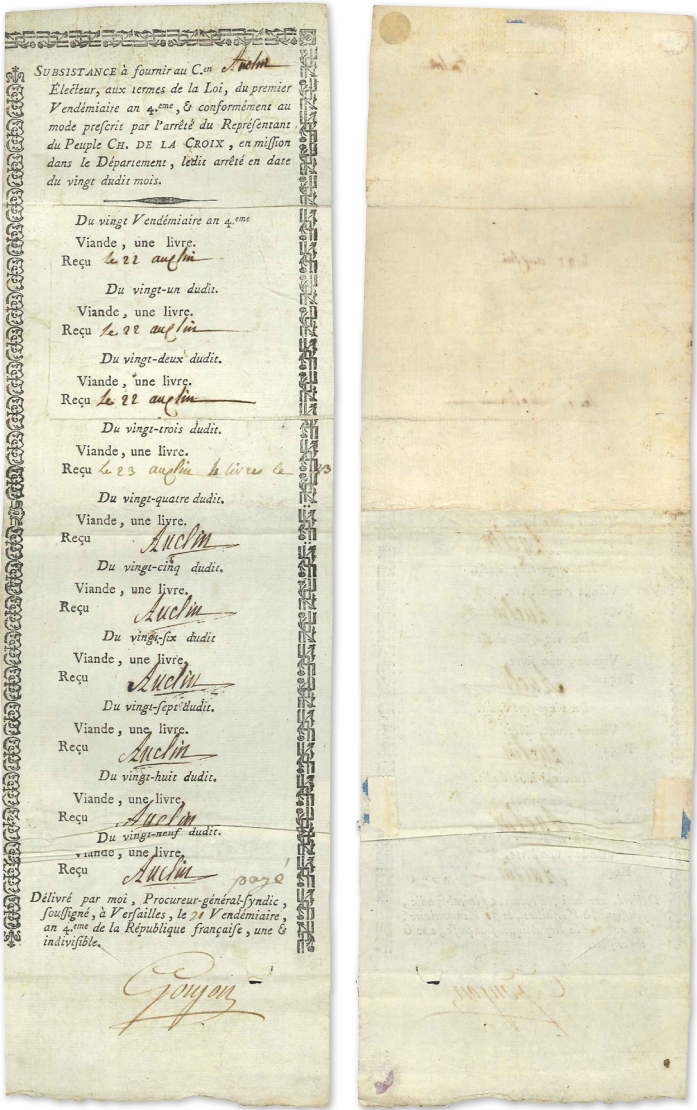 SUBSISTANCE à fournir au C.en Auclin
Électeur, aux termes de la Loi, du premier
Vendémiaire an 4.eme, & conformément au
mode prescrit par l'arrêté du Représentant
du Peuple CH. DE LA CROIX, en mission
dans le Département, ledit arrêté en date
du vingt dudit mois.
Du vingt Vendémiaire an 4.eme
Viande, une livre.
Reçu le 22 auclin
Du vingt-un dudit.
Viande, une livre.
Reçu le 22 auclin
Du vingt-deux dudit.
Viande, une livre.
Reçu le 22 auclin
Du vingt-trois dudit.
Viande, une livre.
Reçu le 23 auclin 4 livres le 23
Du vingt-quatre dudit.
Viande, une livre.
Reçu Auclin
Du vingt-cinq dudit.
Viande, une livre.
Reçu Auclin
Du vingt-six dudit
Viande, une livre.
Reçu Auclin
Du vingt-sept dudit.
Viande, une livre.
Reçu Auclin
Du vingt-huit dudit.
Viande, une livre.
Reçu Auclin
Du vingt-neuf dudit.
Viande, une livre.
Reçu Auclin
payé
Délivré par moi, Procureur-général-syndic,
soussigné, à Versailles, le 21 Vendémiaire,
an 4.eme de la République française, une &
indivisible.
Goujon